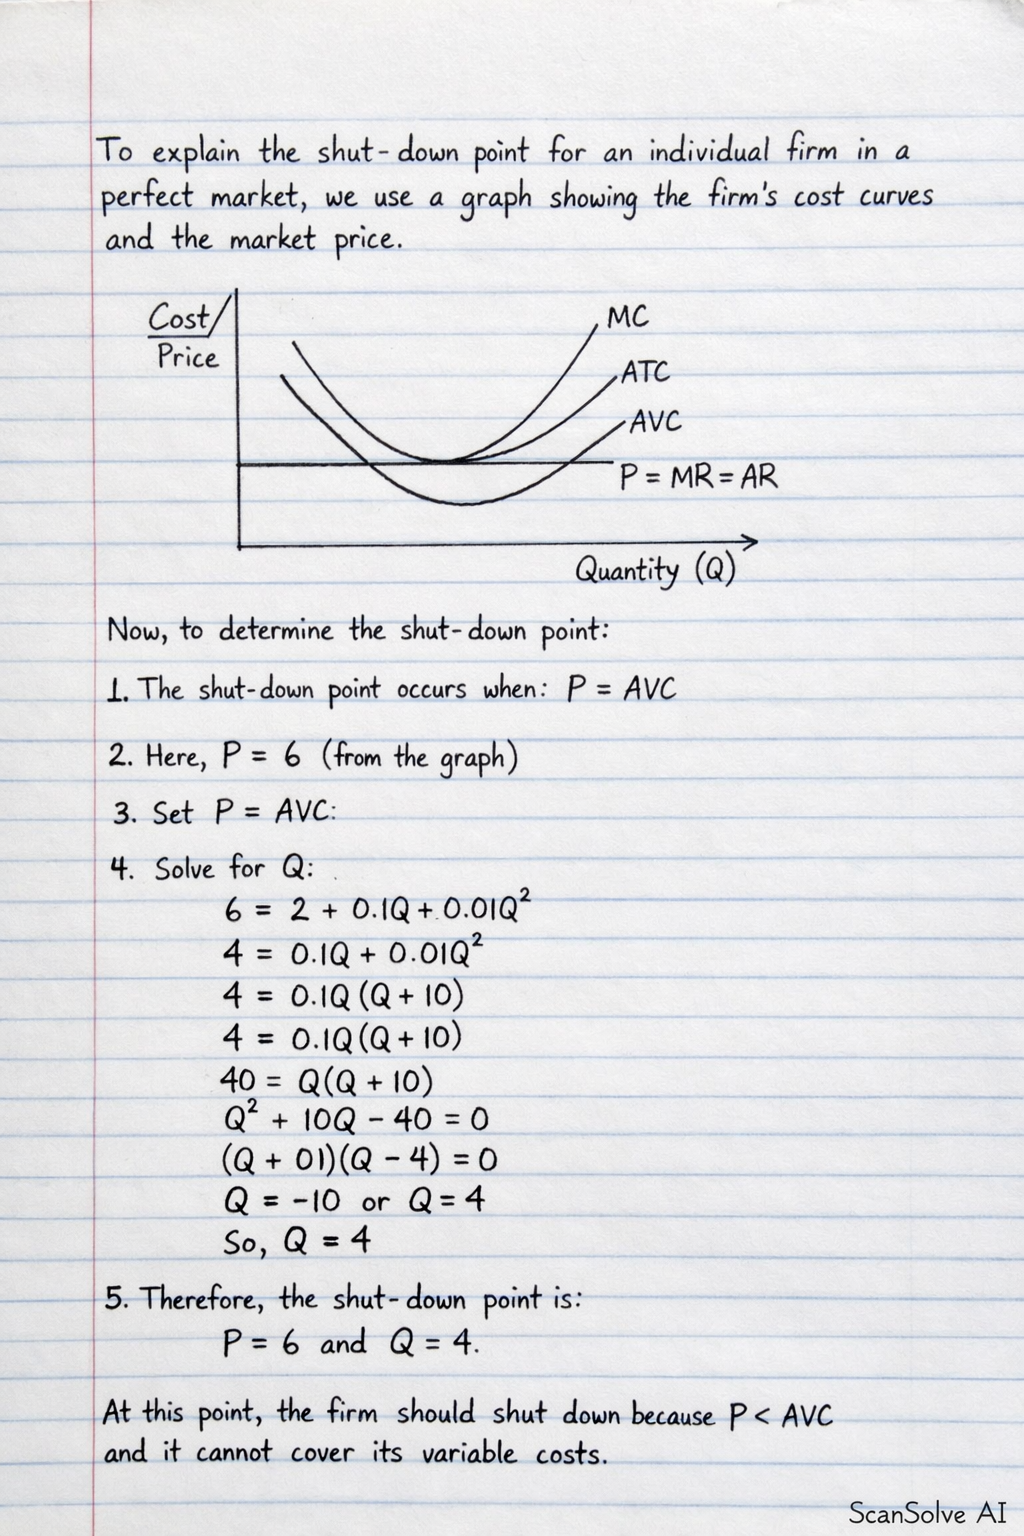 To explain the shut-down point for an individual firm in a
perfect market, we use a graph showing the firm's cost curves
and the market price.
Cost/
Price
MC
ATC
AVC
P = MR = AR
Quantity (Q)
Now, to determine the shut-down point:
1. The shut-down point occurs when: P = AVC
2. Here, P = 6 (from the graph)
3. Set P = AVC:
4. Solve for Q:
6 = 2 + 0.1Q + 0.01Q²
4 = 0.1Q + 0.01Q²
4 = 0.1Q (Q + 10)
4 = 0.1Q (Q + 10)
40 = Q(Q + 10)
Q² + 10Q - 40 = 0
(Q + 01)(Q - 4) = 0
Q = -10 or Q = 4
So, Q = 4
5. Therefore, the shut-down point is:
P = 6 and Q = 4.
At this point, the firm should shut down because P < AVC
and it cannot cover its variable costs.
ScanSolve AI